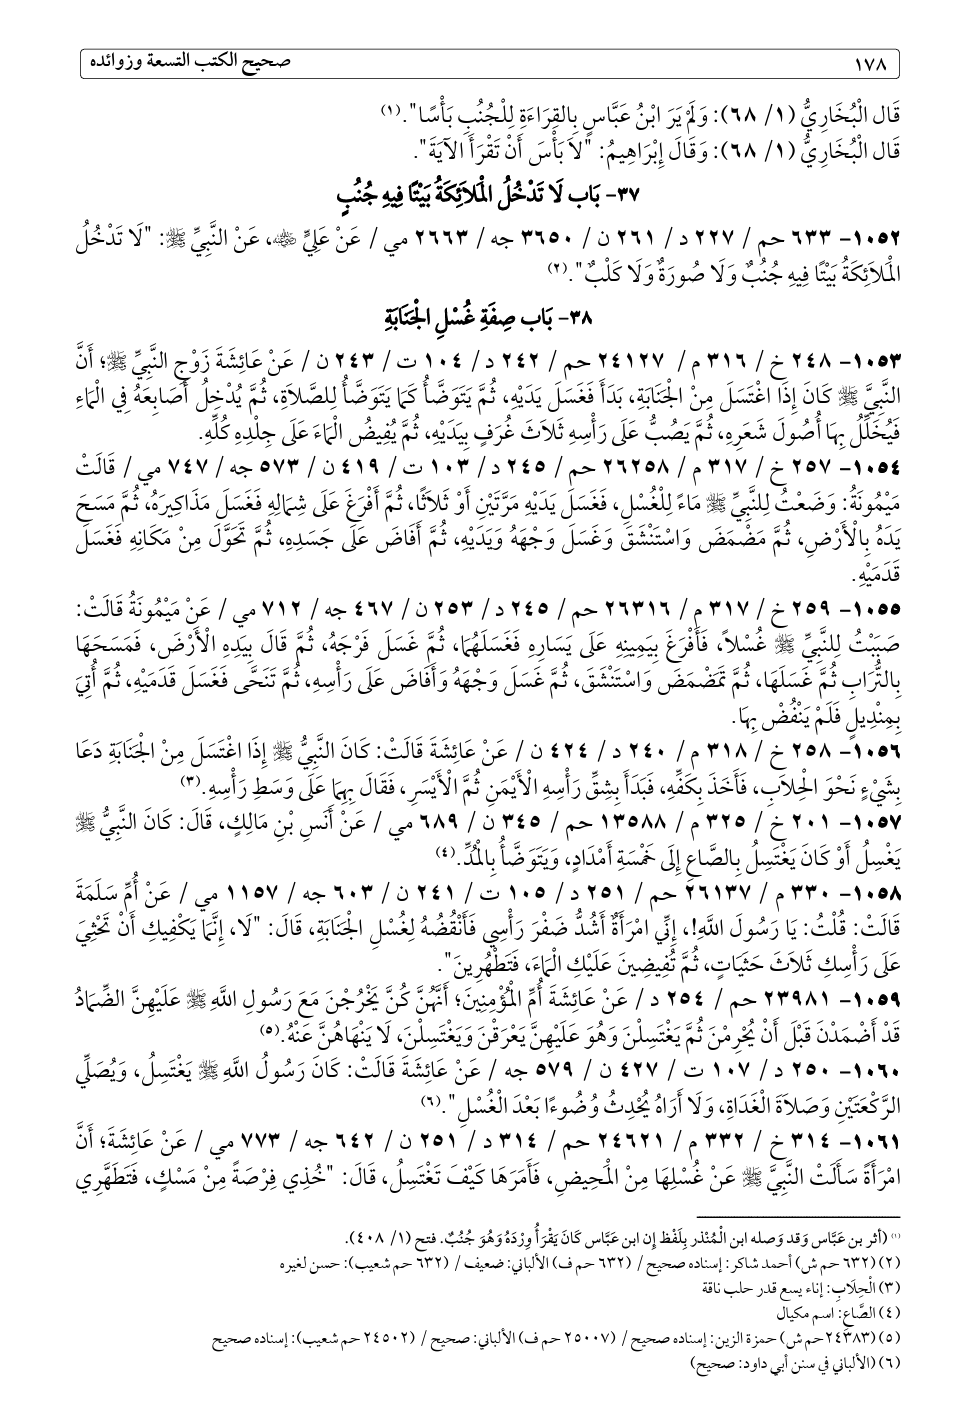 ١٧٨ صحيح الكتب التسعة وزوائده
قَال الْبُخَارِيُّ (١/ ٦٨): وَلَمْ يَرَ ابْنُ عَبَّاسٍ بِالقِرَاءَةِ لِلْجُنُبِ بَأْسًا".(١)
قَال الْبُخَارِيُّ (١/ ٦٨): وَقَالَ إِبْرَاهِيمُ: "لاَ بَأْسَ أَنْ تَقْرَأَ الآيَةَ".
٣٧- بَاب لَا تَدْخُلُ الْمَلَائِكَةُ بَيْتًا فِيهِ جُنُبٍ
١٠٥٢- ٦٣٣ حم / ٢٢٧ د / ٢٦١ ن / ٣٦٥٠ جه / ٢٦٦٣ مي / عَنْ عَلِيٍّ ﵁، عَنْ النَّبِيِّ ﷺ: "لَا تَدْخُلُ
الْمَلَائِكَةُ بَيْتًا فِيهِ جُنُبٌ وَلَا صُورَةٌ وَلَا كَلْبٌ".(٢)
٣٨- بَاب صِفَةِ غُسْلِ الْجَنَابَةِ
١٠٥٣- ٢٤٨ خ / ٣١٦ م / ٢٤١٢٧ حم / ٢٤٢ د / ١٠٤ ت / ٢٤٣ ن / عَنْ عَائِشَةَ زَوْجِ النَّبِيِّ ﷺ؛ أَنَّ
النَّبِيَّ ﷺ كَانَ إِذَا اغْتَسَلَ مِنْ الْجَنَابَةِ، بَدَأَ فَغَسَلَ يَدَيْهِ، ثُمَّ يَتَوَضَّأُ كَمَا يَتَوَضَّأُ لِلصَّلَاةِ، ثُمَّ يُدْخِلُ أَصَابِعَهُ فِي الْمَاءِ
فَيُخَلِّلُ بِهَا أُصُولَ شَعَرِهِ، ثُمَّ يَصُبُّ عَلَى رَأْسِهِ ثَلَاثَ غُرَفٍ بِيَدَيْهِ، ثُمَّ يُفِيضُ الْمَاءَ عَلَى جِلْدِهِ كُلِّهِ.
١٠٥٤- ٢٥٧ خ / ٣١٧ م / ٢٦٢٥٨ حم / ٢٤٥ د / ١٠٣ ت / ٤١٩ ن / ٥٧٣ جه / ٧٤٧ مي / قَالَتْ
مَيْمُونَةُ: وَضَعْتُ لِلنَّبِيِّ ﷺ مَاءً لِلْغُسْلِ، فَغَسَلَ يَدَيْهِ مَرَّتَيْنِ أَوْ ثَلَاثًا، ثُمَّ أَفْرَغَ عَلَى شِمَالِهِ فَغَسَلَ مَذَاكِيرَهُ، ثُمَّ مَسَحَ
يَدَهُ بِالْأَرْضِ، ثُمَّ مَضْمَضَ وَاسْتَنْشَقَ وَغَسَلَ وَجْهَهُ وَيَدَيْهِ، ثُمَّ أَفَاضَ عَلَى جَسَدِهِ، ثُمَّ تَحَوَّلَ مِنْ مَكَانِهِ فَغَسَلَ
قَدَمَيْهِ.
١٠٥٥- ٢٥٩ خ / ٣١٧ م / ٢٦٣١٦ حم / ٢٤٥ د / ٢٥٣ ن / ٤٦٧ جه / ٧١٢ مي / عَنْ مَيْمُونَةُ قَالَتْ:
صَبَبْتُ لِلنَّبِيِّ ﷺ غُسْلاً، فَأَفْرَغَ بِيَمِينِهِ عَلَى يَسَارِهِ فَغَسَلَهُمَا، ثُمَّ غَسَلَ فَرْجَهُ، ثُمَّ قَالَ بِيَدِهِ الْأَرْضَ، فَمَسَحَهَا
بِالتُّرَابِ ثُمَّ غَسَلَهَا، ثُمَّ تَمَضْمَضَ وَاسْتَنْشَقَ، ثُمَّ غَسَلَ وَجْهَهُ وَأَفَاضَ عَلَى رَأْسِهِ، ثُمَّ تَنَحَّى فَغَسَلَ قَدَمَيْهِ، ثُمَّ أُتِيَ
بِمِنْدِيلٍ فَلَمْ يَنْفُضْ بِهَا.
١٠٥٦- ٢٥٨ خ / ٣١٨ م / ٢٤٠ د / ٤٢٤ ن / عَنْ عَائِشَةَ قَالَتْ: كَانَ النَّبِيُّ ﷺ إِذَا اغْتَسَلَ مِنْ الْجَنَابَةِ دَعَا
بِشَيْءٍ نَحْوَ الْحِلَابِ، فَأَخَذَ بِكَفِّهِ، فَبَدَأَ بِشِقِّ رَأْسِهِ الْأَيْمَنِ ثُمَّ الْأَيْسَرِ، فَقَالَ بِهِمَا عَلَى وَسَطِ رَأْسِهِ.(٣)
١٠٥٧- ٢٠١ خ / ٣٢٥ م / ١٣٥٨٨ حم / ٣٤٥ ن / ٦٨٩ مي / عَنْ أَنَسِ بْنِ مَالِكٍ، قَالَ: كَانَ النَّبِيُّ ﷺ
يَغْسِلُ أَوْ كَانَ يَغْتَسِلُ بِالصَّاعِ إِلَى خَمْسَةِ أَمْدَادٍ، وَيَتَوَضَّأُ بِالْمُدِّ.(٤)
١٠٥٨- ٣٣٠ م / ٢٦١٣٧ حم / ٢٥١ د / ١٠٥ ت / ٢٤١ ن / ٦٠٣ جه / ١١٥٧ مي / عَنْ أُمِّ سَلَمَةَ
قَالَتْ: قُلْتُ: يَا رَسُولَ اللَّهِ!، إِنِّي امْرَأَةٌ أَشُدُّ ضَفْرَ رَأْسِي فَأَنْقُضُهُ لِغُسْلِ الْجَنَابَةِ، قَالَ: "لَا، إِنَّمَا يَكْفِيكِ أَنْ تَحْثِيَ
عَلَى رَأْسِكِ ثَلَاثَ حَثَيَاتٍ، ثُمَّ تُفِيضِينَ عَلَيْكِ الْمَاءَ، فَتَطْهُرِينَ".
١٠٥٩- ٢٣٩٨١ حم / ٢٥٤ د / عَنْ عَائِشَةَ أُمِّ الْمُؤْمِنِينَ؛ أَنَّهُنَّ كُنَّ يَخْرُجْنَ مَعَ رَسُولِ اللَّهِ ﷺ عَلَيْهِنَّ الضِّمَادُ
قَدْ أَضْمَدْنَ قَبْلَ أَنْ يُحْرِمْنَ ثُمَّ يَغْتَسِلْنَ وَهُوَ عَلَيْهِنَّ يَعْرَقْنَ وَيَغْتَسِلْنَ، لَا يَنْهَاهُنَّ عَنْهُ.(٥)
١٠٦٠- ٢٥٠ د / ١٠٧ ت / ٤٢٧ ن / ٥٧٩ جه / عَنْ عَائِشَةَ قَالَتْ: كَانَ رَسُولُ اللَّهِ ﷺ يَغْتَسِلُ، وَيُصَلِّي
الرَّكْعَتَيْنِ وَصَلَاةَ الْغَدَاةِ، وَلَا أَرَاهُ يُحْدِثُ وُضُوءًا بَعْدَ الْغُسْلِ".(٦)
١٠٦١- ٣١٤ خ / ٣٣٢ م / ٢٤٦٢١ حم / ٣١٤ د / ٢٥١ ن / ٦٤٢ جه / ٧٧٣ مي / عَنْ عَائِشَةَ؛ أَنَّ
امْرَأَةً سَأَلَتْ النَّبِيَّ ﷺ عَنْ غُسْلِهَا مِنْ الْمَحِيضِ، فَأَمَرَهَا كَيْفَ تَغْتَسِلُ، قَالَ: "خُذِي فِرْصَةً مِنْ مَسْكٍ، فَتَطَهَّرِي
(١) (أثر بن عَبَّاس وَقد وَصله ابن الْمُنْذر بِلَفْظ إن ابن عَبَّاس كَانَ يَقْرَأُ وِرْدَهُ وَهُوَ جُنُبٌ. فتح (١/ ٤٠٨).
(٢) (٦٣٢ حم ش) أحمد شاكر: إسناده صحيح / (٦٣٢ حم ف) الألباني: ضعيف / (٦٣٢ حم شعيب): حسن لغيره
(٣) الْحِلَاب: إناء يسع قدر حلب ناقة
(٤) الصَّاع: اسم مكيال
(٥) (٢٤٣٨٣حم ش) حمزة الزين: إسناده صحيح / (٢٥٠٠٧ حم ف) الألباني: صحيح / (٢٤٥٠٢ حم شعيب): إسناده صحيح
(٦) (الألباني في سنن أبي داود: صحيح)